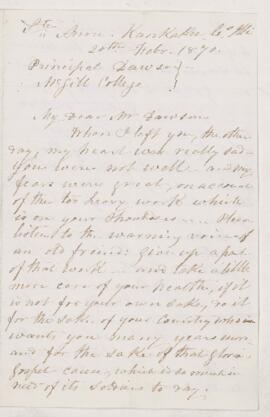 Ste Anne. Kankakee Co. Ills
20th Febr. 1870.
Principal Dawson }
McGill College }
My Dear Mr Dawson
When I left you, the other
day, my heart was really sad-
you were not well and my
fears were great, on account
of the too heavy work which
is on your shoulders.... Please
listen to the warning voice of
an old friend: give up a part
of that work... and take a little
more care of your health; if it
is not for your own sake, do it
for the sake of your Country which
wants you many years more
and for the sake of that glorious
gospel cause, which is so much in
need of its soldiers to day.